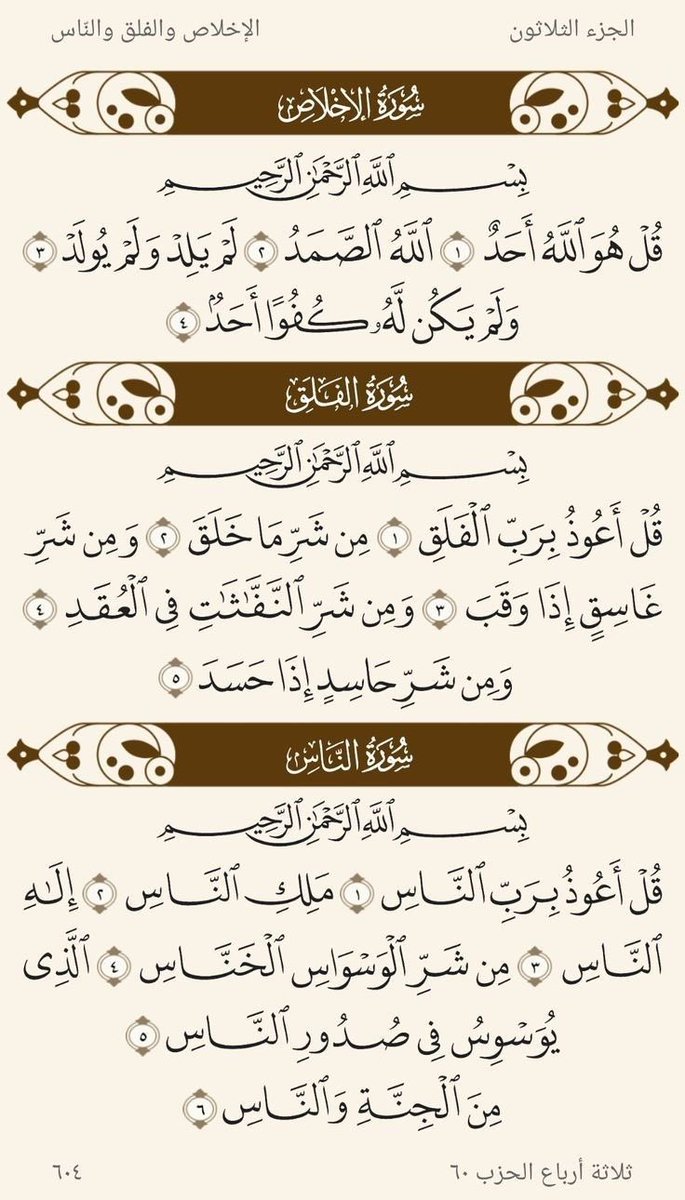 الجزء الثلاثون
الإخلاص والفلق والنّاس
سُورَةُ الإِخْلَاصِ
بِسْمِ ٱللَّهِ ٱلرَّحْمَٰنِ ٱلرَّحِيمِ
قُلْ هُوَ ٱللَّهُ أَحَدٌ ١ ٱللَّهُ ٱلصَّمَدُ ٢ لَمْ يَلِدْ وَلَمْ يُولَدْ ٣
وَلَمْ يَكُن لَّهُۥ كُفُوًا أَحَدٌۢ ٤
سُورَةُ الفَلَقِ
بِسْمِ ٱللَّهِ ٱلرَّحْمَٰنِ ٱلرَّحِيمِ
قُلْ أَعُوذُ بِرَبِّ ٱلْفَلَقِ ١ مِن شَرِّ مَا خَلَقَ ٢ وَمِن شَرِّ
غَاسِقٍ إِذَا وَقَبَ ٣ وَمِن شَرِّ ٱلنَّفَّٰثَٰتِ فِى ٱلْعُقَدِ ٤
وَمِن شَرِّ حَاسِدٍ إِذَا حَسَدَ ٥
سُورَةُ النَّاسِ
بِسْمِ ٱللَّهِ ٱلرَّحْمَٰنِ ٱلرَّحِيمِ
قُلْ أَعُوذُ بِرَبِّ ٱلنَّاسِ ١ مَلِكِ ٱلنَّاسِ ٢ إِلَٰهِ
ٱلنَّاسِ ٣ مِن شَرِّ ٱلْوَسْوَاسِ ٱلْخَنَّاسِ ٤ ٱلَّذِى
يُوَسْوِسُ فِى صُدُورِ ٱلنَّاسِ ٥
مِنَ ٱلْجِنَّةِ وَٱلنَّاسِ ٦
ثلاثة أرباع الحزب ٦٠
٦٠٤